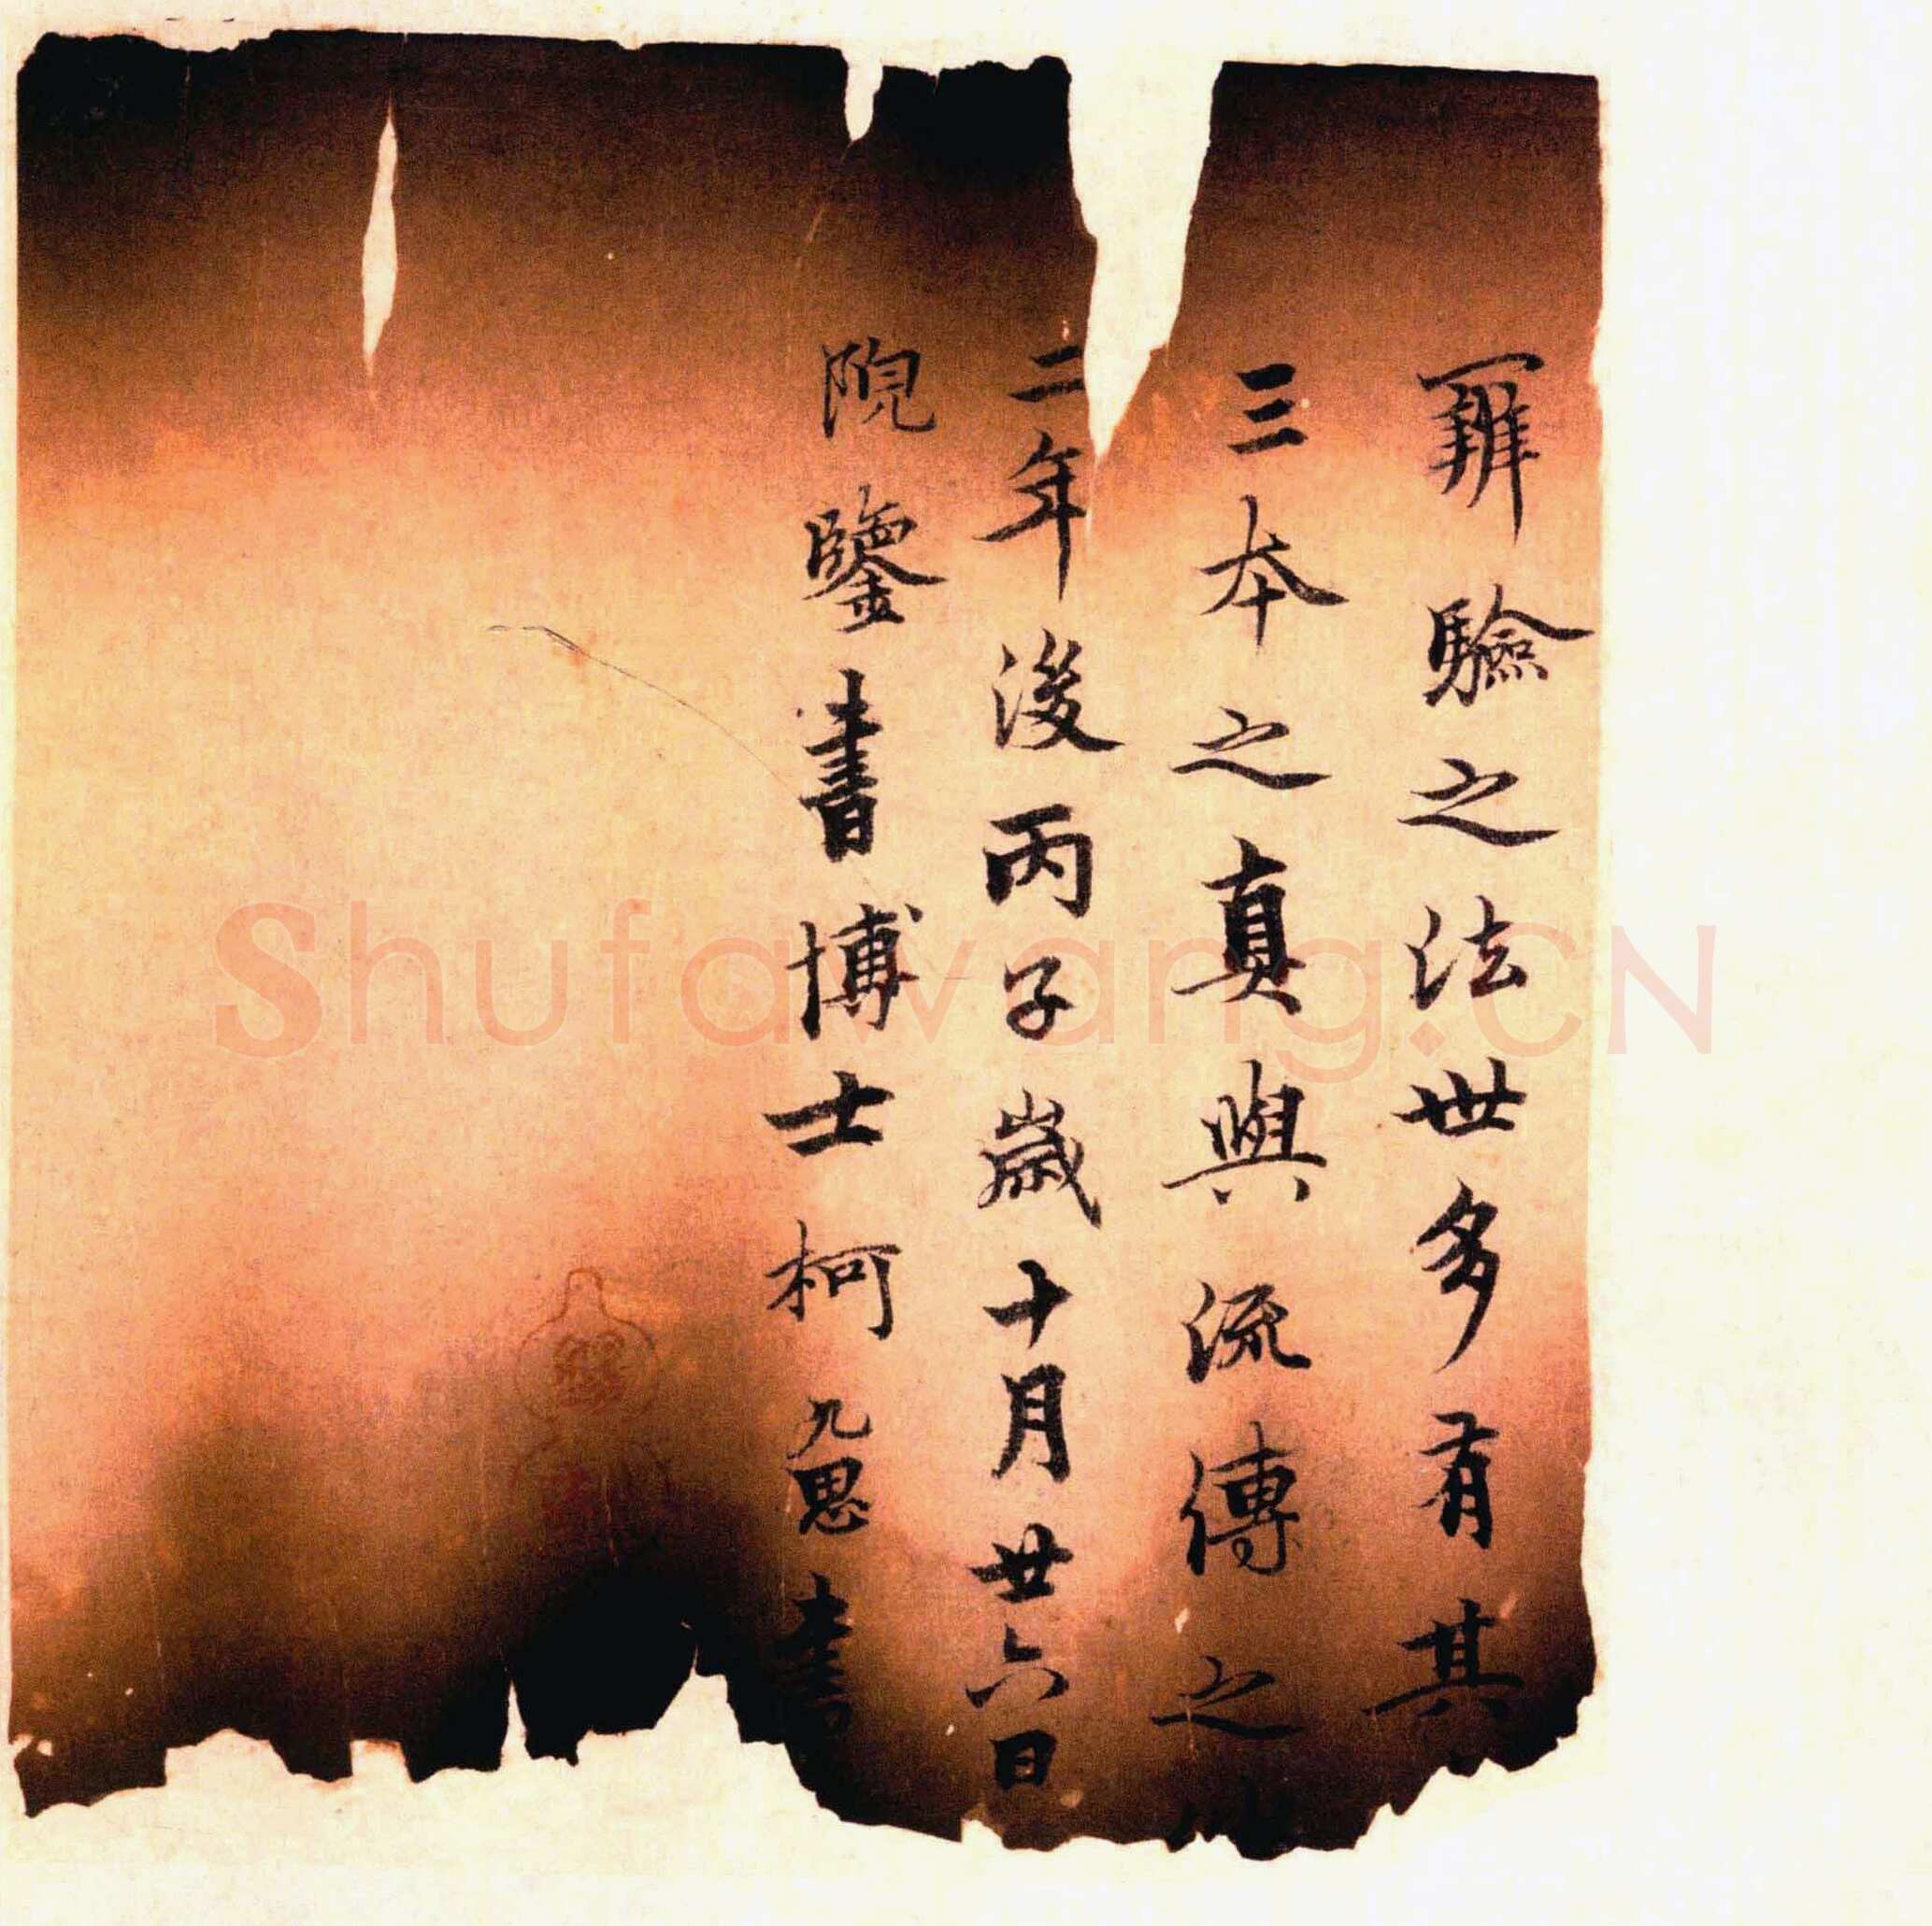 辨驗之法世多有其
三本之真與流傳之
二年後丙子歲十月廿六日
院鑒書博士柯九思書
Shufawang.CN